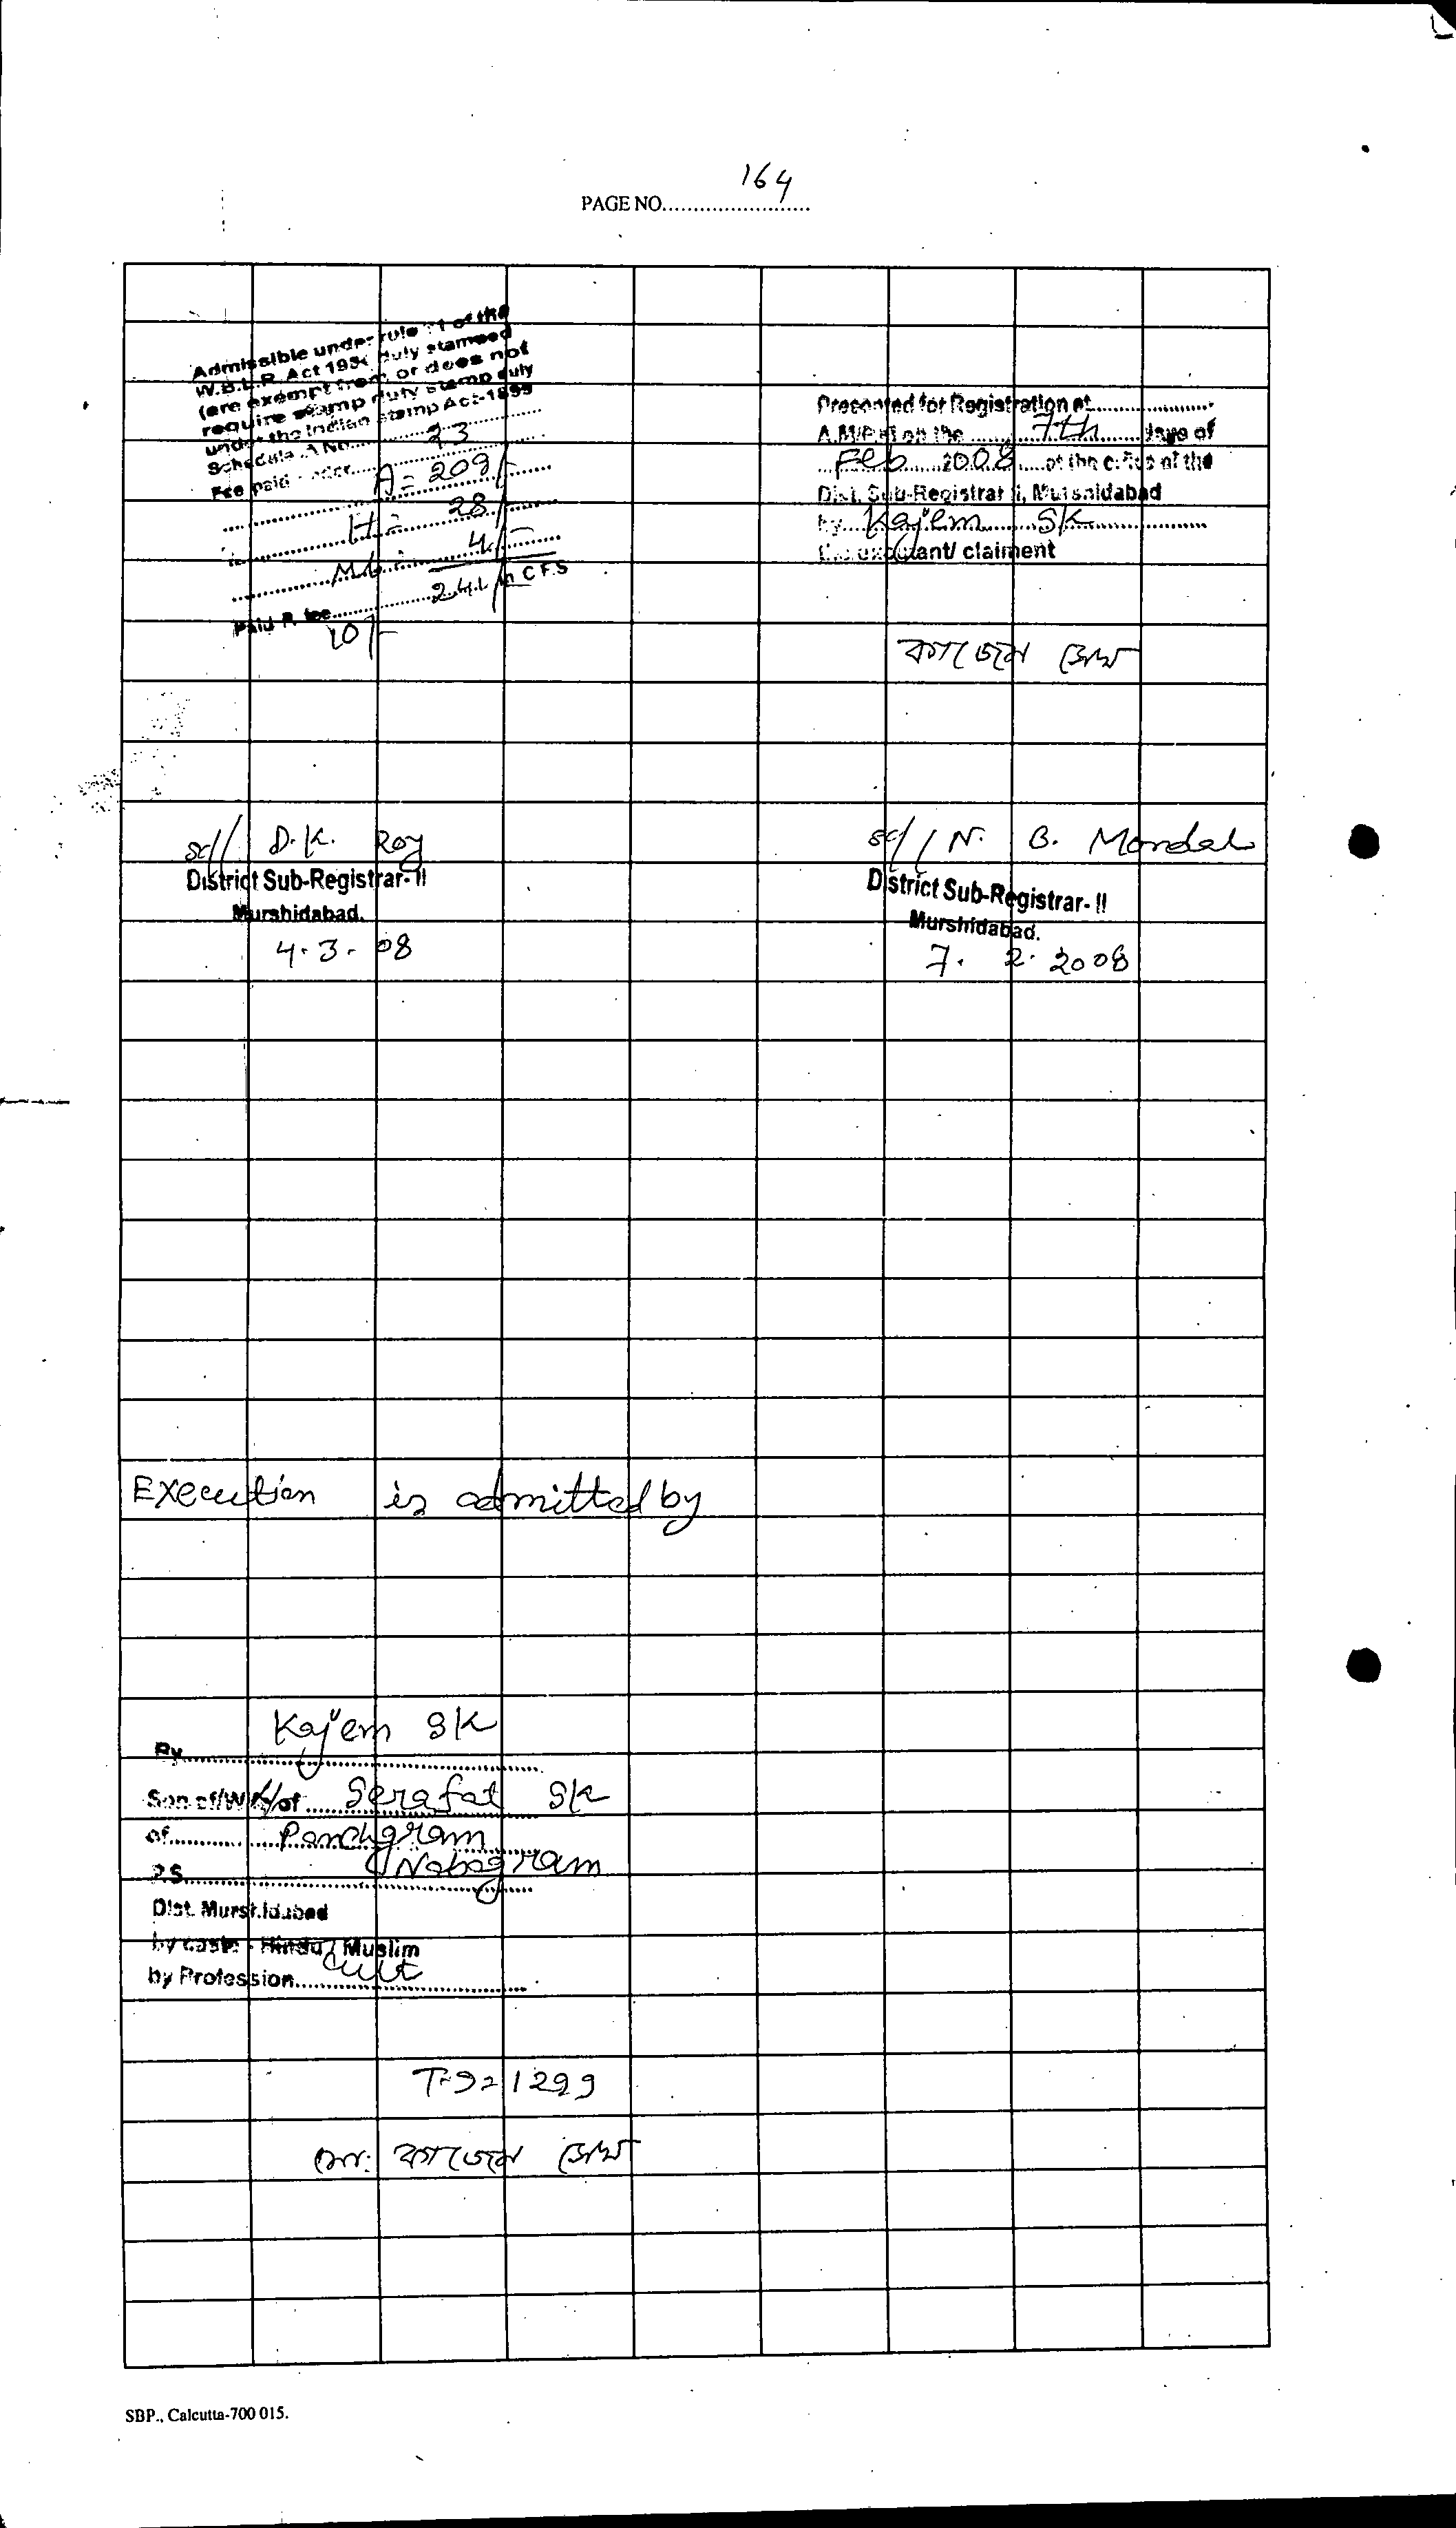 PAGE NO. 164
Admissible under rule 21 of the
W.B.L.R. Act 195 duly stamped
(are exempt from or does not
require stamp duty stamp duly
under the Indian stamp Act-1899
Schedule A No. 23
Fee paid under
A = 209/-
H = 28/-
4/-
241/- in C F.S
Paid P. fee
10/-
Presented for Registration at
A.M/P.M on the 7th days of
Feb 2008 at the office of the
Dist. Sub-Registrar II, Murshidabad
by Kajem SK
the executant/ claiment
কাজেম সেখ
sd// D.K. Roy
District Sub-Registrar- II
Murshidabad.
4.3.08
sd// N. B. Mondal
District Sub-Registrar- II
Murshidabad.
7. 2. 2008
Execution is admitted by
By Kajem SK
Son of/Wife/of Serafat SK
of Panchgram
P.S. Nabagram
Dist. Murshidabad
by caste - Hindu / Muslim
by Profession Cult
1299
কাজেম সেখ
SBP., Calcutta-700 015.